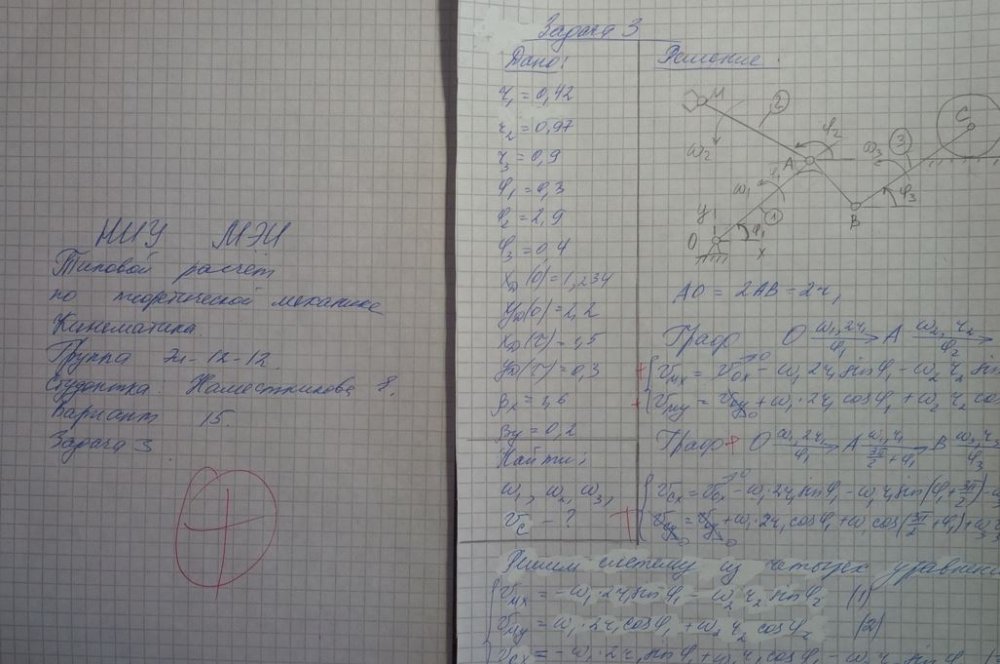 НИУ МЭИ
Типовой расчёт
по теоретической механике
Кинематика
Группа Эл-12-12
Студентка: Наместникова
Вариант 15.
Задача 3
Задача 3
Дано:
r₁ = 0,42
r₂ = 0,97
r₃ = 0,9
φ₁ = 0,3
φ₂ = 2,9
φ₃ = 0,4
x_D(0) = 1,234
y_D(0) = 2,2
x_D(τ) = 1,5
y_D(τ) = 0,3
βx = 1,6
βy = 0,2
Найти:
ω₁, ω₂, ω₃,
v_C - ?
Решение:
M
2
φ₂
ω₂
A
ω₃
3
C
φ₁
ω₁
y
1
φ₁
O
x
B
φ₃
AO = 2AB = 2r₁
Граф O ω₁, 2r₁ φ₁ A ω₂, r₂ φ₂
v_Mx = v_Ox - ω₁ 2r₁ sinφ₁ - ω₂ r₂ sin
v_My = v_Oy + ω₁·2r₁ cosφ₁ + ω₂ r₂ co
Граф O ω₁, 2r₁ φ₁ A ω₁, r₁ 3π/2 + φ₁ B ω₃, r₃ φ₃
v_Cx = v_Ox - ω₁·2r₁ sinφ₁ - ω₁ r₁ sin(φ₁ + 3π/2) - ω₃
v_Cy = v_Oy + ω₁·2r₁ cosφ₁ + ω₁ cos(3π/2 + φ₁) + ω₃
Решим систему из четырех уравнени
v_Mx = -ω₁·2r₁ sinφ₁ - ω₂ r₂ sinφ₂ (1)
v_My = ω₁·2r₁ cosφ₁ + ω₂ r₂ cosφ₂ (2)
v_Cx = -ω₁·2r₁ sinφ₁ + ω₁ r₁ cosφ₁ - ω₃ r₃ sin